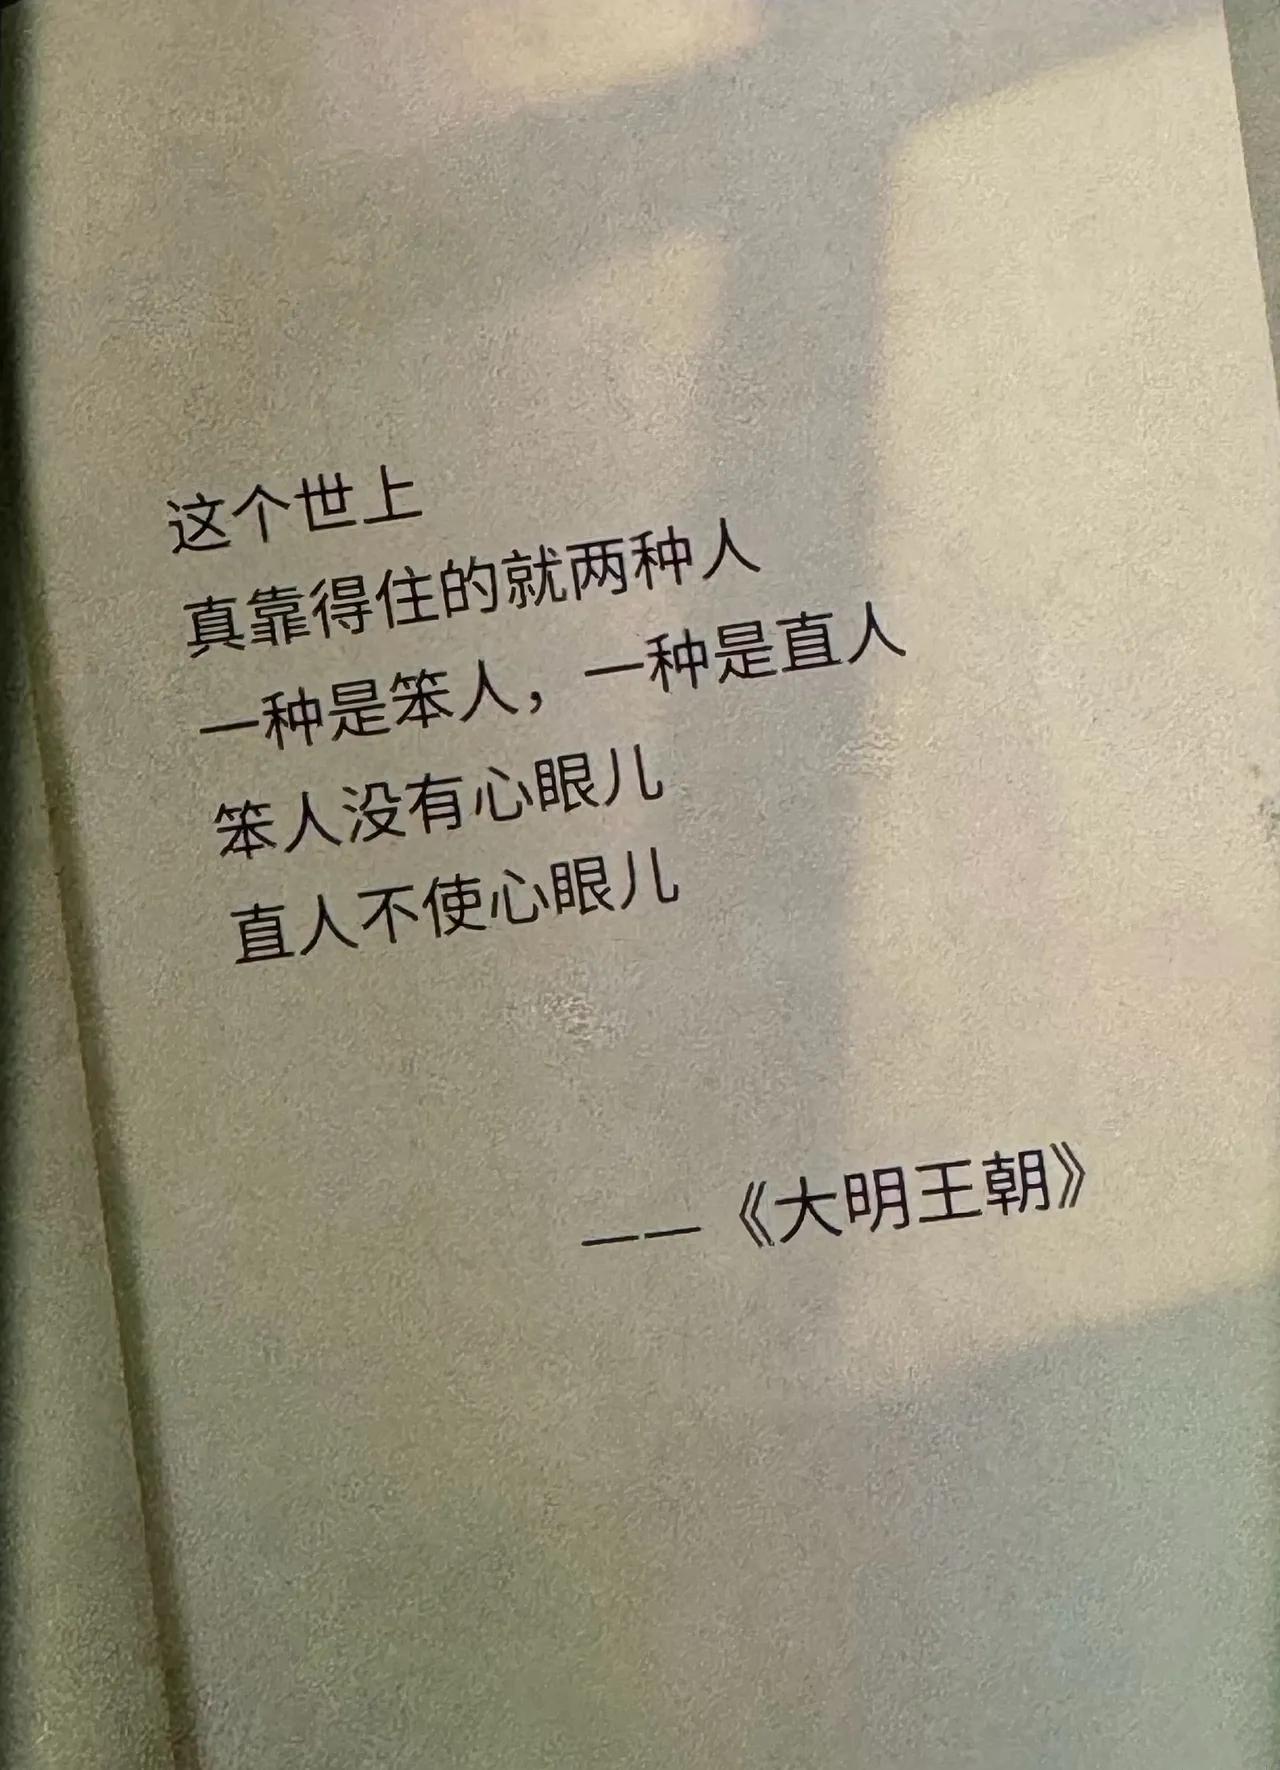 这个世上
真靠得住的就两种人
一种是笨人，一种是直人
笨人没有心眼儿
直人不使心眼儿
——《大明王朝》